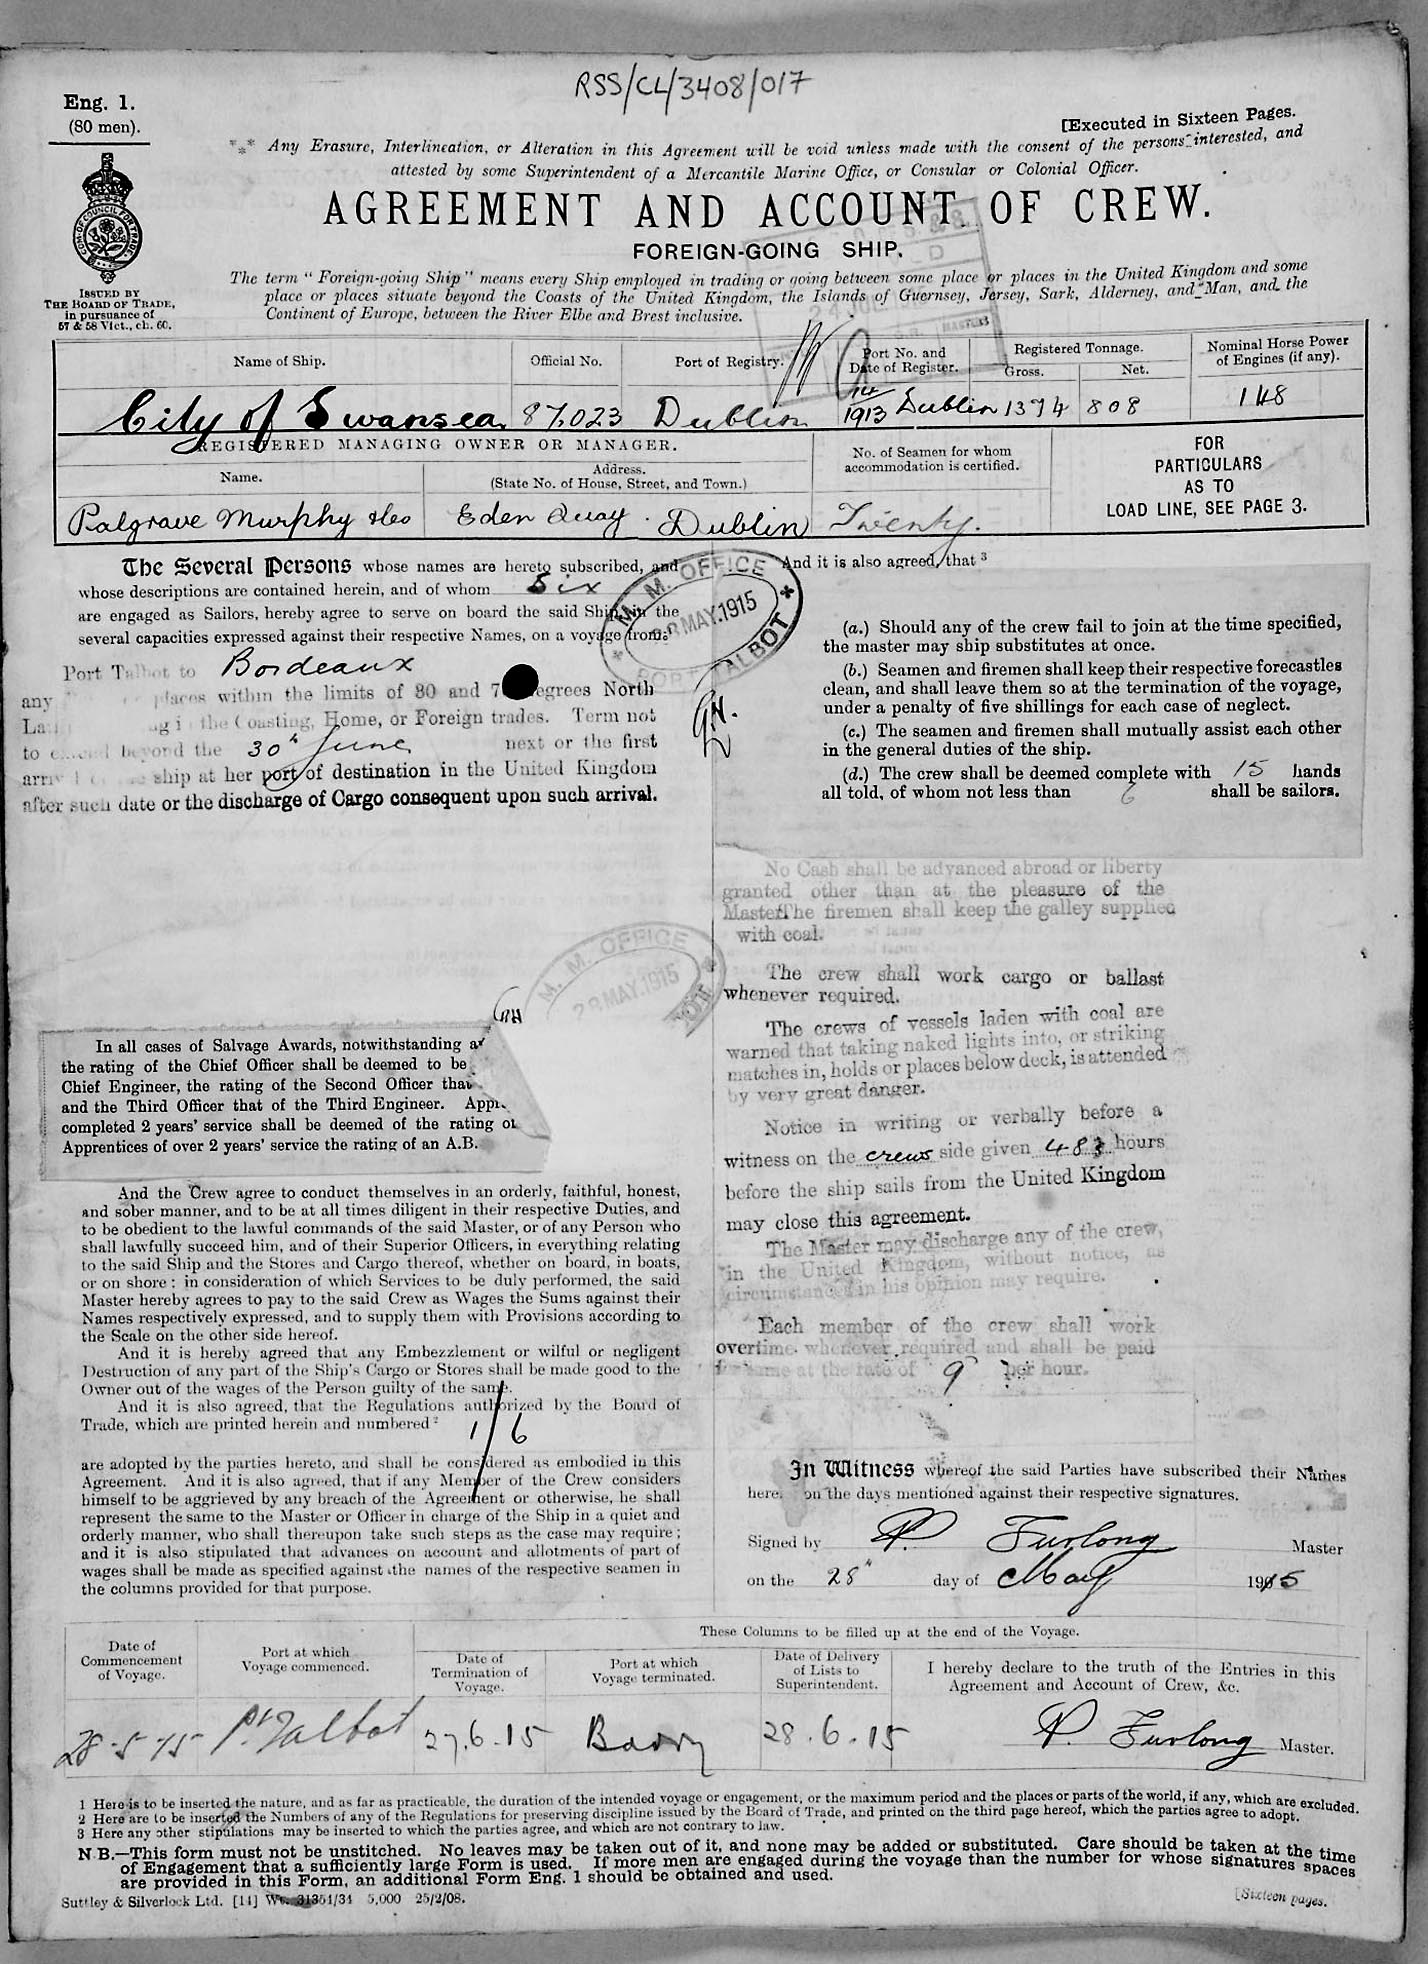 RSS/CL/3408/017
Eng. 1.
(80 men).
[Executed in Sixteen Pages.
*** Any Erasure, Interlineation, or Alteration in this Agreement will be void unless made with the consent of the persons interested, and
attested by some Superintendent of a Mercantile Marine Office, or Consular or Colonial Officer.
AGREEMENT AND ACCOUNT OF CREW.
FOREIGN-GOING SHIP.
ISSUED BY
THE BOARD OF TRADE,
in pursuance of
57 & 58 Vict., ch. 60.
The term "Foreign-going Ship" means every Ship employed in trading or going between some place or places in the United Kingdom and some
place or places situate beyond the Coasts of the United Kingdom, the Islands of Guernsey, Jersey, Sark, Alderney, and Man, and the
Continent of Europe, between the River Elbe and Brest inclusive.
Name of Ship.
Official No.
Port of Registry.
Port No. and
Date of Register.
Registered Tonnage.
Gross.
Net.
Nominal Horse Power
of Engines (if any).
City of Swansea
87,023
Dublin
1913 Dublin
1374
808
148
REGISTERED MANAGING OWNER OR MANAGER.
Name.
Address.
(State No. of House, Street, and Town.)
No. of Seamen for whom
accommodation is certified.
FOR
PARTICULARS
AS TO
LOAD LINE, SEE PAGE 3.
Palgrave Murphy & Co
Eden Quay. Dublin
Twenty.
The Several Persons whose names are hereto subscribed, and
whose descriptions are contained herein, and of whom Six
are engaged as Sailors, hereby agree to serve on board the said Ship, in the
several capacities expressed against their respective Names, on a voyage from
Port Talbot to Bordeaux
any places within the limits of 30 and 7 degrees North
the Coasting, Home, or Foreign trades. Term not
to extend beyond the 30th June next or the first
ship at her port of destination in the United Kingdom
after such date or the discharge of Cargo consequent upon such arrival.
M. M. OFFICE
28 MAY.1915
PORT TALBOT
And it is also agreed, that 3
(a.) Should any of the crew fail to join at the time specified,
the master may ship substitutes at once.
(b.) Seamen and firemen shall keep their respective forecastles
clean, and shall leave them so at the termination of the voyage,
under a penalty of five shillings for each case of neglect.
(c.) The seamen and firemen shall mutually assist each other
in the general duties of the ship.
(d.) The crew shall be deemed complete with 15 hands
all told, of whom not less than 6 shall be sailors.
No Cash shall be advanced abroad or liberty
granted other than at the pleasure of the
Master. The firemen shall keep the galley supplied
with coal.
The crew shall work cargo or ballast
whenever required.
The crews of vessels laden with coal are
warned that taking naked lights into, or striking
matches in, holds or places below deck, is attended
by very great danger.
Notice in writing or verbally before a
witness on the crews side given 48 hours
before the ship sails from the United Kingdom
may close this agreement.
The Master may discharge any of the crew,
in the United Kingdom, without notice, as
circumstances in his opinion may require.
Each member of the crew shall work
overtime whenever required and shall be paid
for same at the rate of 9d per hour.
M. M. OFFICE
28 MAY.1915
In all cases of Salvage Awards, notwithstanding
the rating of the Chief Officer shall be deemed to be
Chief Engineer, the rating of the Second Officer that
and the Third Officer that of the Third Engineer.
completed 2 years' service shall be deemed of the rating
Apprentices of over 2 years' service the rating of an A.B.
And the Crew agree to conduct themselves in an orderly, faithful, honest,
and sober manner, and to be at all times diligent in their respective Duties, and
to be obedient to the lawful commands of the said Master, or of any Person who
shall lawfully succeed him, and of their Superior Officers, in everything relating
to the said Ship and the Stores and Cargo thereof, whether on board, in boats,
or on shore : in consideration of which Services to be duly performed, the said
Master hereby agrees to pay to the said Crew as Wages the Sums against their
Names respectively expressed, and to supply them with Provisions according to
the Scale on the other side hereof.
And it is hereby agreed that any Embezzlement or wilful or negligent
Destruction of any part of the Ship's Cargo or Stores shall be made good to the
Owner out of the wages of the Person guilty of the same.
And it is also agreed, that the Regulations authorized by the Board of
Trade, which are printed herein and numbered 2
1/6
are adopted by the parties hereto, and shall be considered as embodied in this
Agreement. And it is also agreed, that if any Member of the Crew considers
himself to be aggrieved by any breach of the Agreement or otherwise, he shall
represent the same to the Master or Officer in charge of the Ship in a quiet and
orderly manner, who shall thereupon take such steps as the case may require ;
and it is also stipulated that advances on account and allotments of part of
wages shall be made as specified against the names of the respective seamen in
the columns provided for that purpose.
In Witness whereof the said Parties have subscribed their Names
on the days mentioned against their respective signatures.
Signed by P. Furlong Master
on the 28" day of May 1915
These Columns to be filled up at the end of the Voyage.
Date of
Commencement
of Voyage.
Port at which
Voyage commenced.
Date of
Termination of
Voyage.
Port at which
Voyage terminated.
Date of Delivery
of Lists to
Superintendent.
I hereby declare to the truth of the Entries in this
Agreement and Account of Crew, &c.
28-5-15
Pt. Talbot
27.6.15
Barry
28.6.15
P. Furlong Master.
1 Here is to be inserted the nature, and as far as practicable, the duration of the intended voyage or engagement, or the maximum period and the places or parts of the world, if any, which are excluded.
2 Here are to be inserted the Numbers of any of the Regulations for preserving discipline issued by the Board of Trade, and printed on the third page hereof, which the parties agree to adopt.
3 Here any other stipulations may be inserted to which the parties agree, and which are not contrary to law.
N.B.—This form must not be unstitched. No leaves may be taken out of it, and none may be added or substituted. Care should be taken at the time
of Engagement that a sufficiently large Form is used. If more men are engaged during the voyage than the number for whose signatures spaces
are provided in this Form, an additional Form Eng. 1 should be obtained and used.
Suttley & Silverlock Ltd. [14] Wt. 31351/34 5,000 25/2/08.
[Sixteen pages.